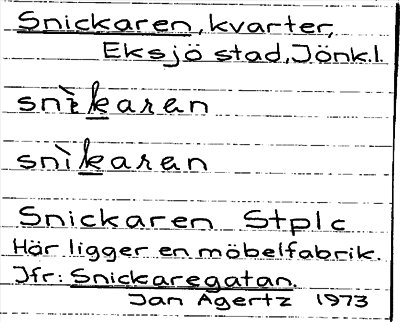 Snickaren, kvarter,
Eksjö stad, Jönk.l.
snìkaran
snìkaran
Snickaren Stplc
Här ligger en möbelfabrik.
Jfr: Snickaregatan.
Jan Agertz 1973